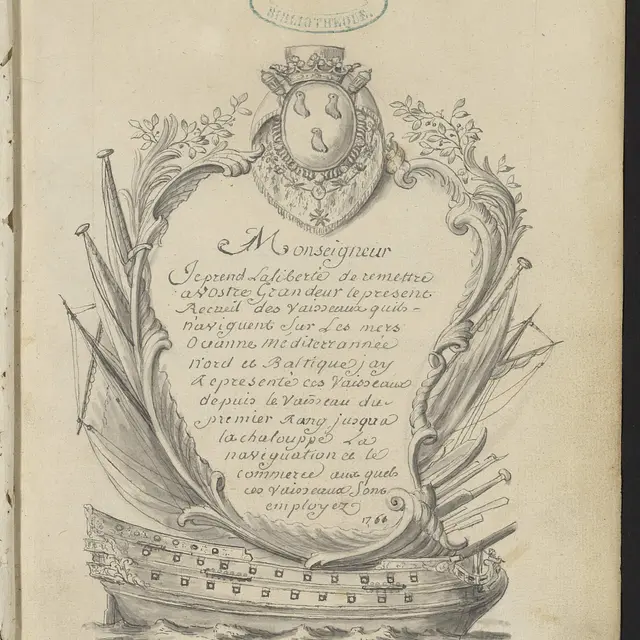 BIBLIOTHEQUE.
Monseigneur
Je prend La liberté de remettre
a Vostre Grandeur le present
Recueil des Vaisseaux quils-
naviguent Sur Les mers
Oceanne Mediterrannée
Nord et Baltique jay
Representé ces Vaisseaux
depuis le Vaisseau du
premier Rang jusqua
la chalouppe La
naviguation et le
commerce aux quels
ces Vaisseaux Sons
employez